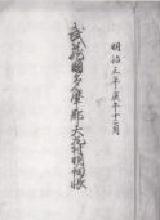 明治三年庚午十二月
武蔵國多摩郡大沢村明細帳